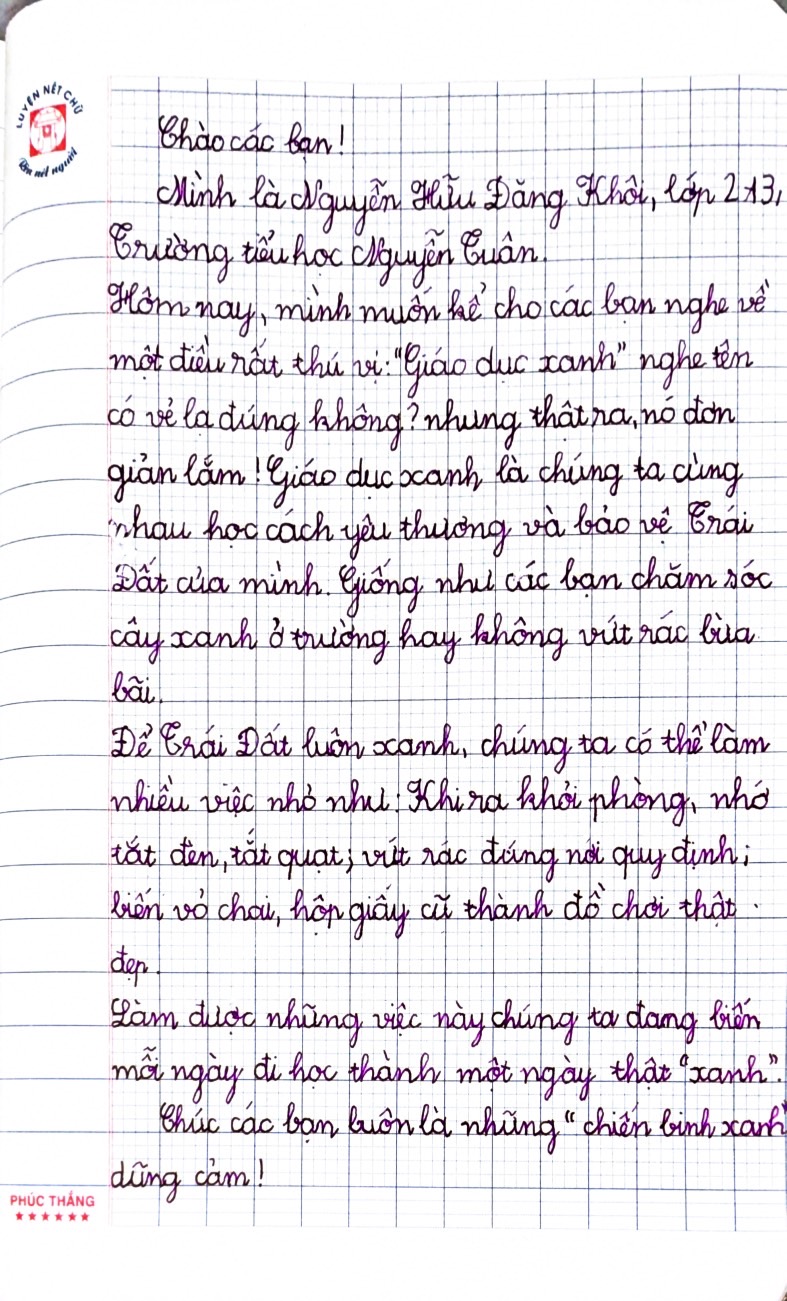 LUYỆN NÉT CHỮ
Rèn nết người
Chào các bạn!
Mình là Nguyễn Hữu Đăng Khôi, lớp 213,
Trường tiểu học Nguyễn Tuân.
Hôm nay, mình muốn kể cho các bạn nghe về
một điều rất thú vị: "Giáo dục xanh" nghe tên
có vẻ lạ đúng không? nhưng thật ra, nó đơn
giản lắm! Giáo dục xanh là chúng ta cùng
nhau học cách yêu thương và bảo vệ Trái
Đất của mình. Giống như các bạn chăm sóc
cây xanh ở trường hay không vứt rác bừa
bãi.
Để Trái Đất luôn xanh, chúng ta có thể làm
nhiều việc nhỏ như: Khi ra khỏi phòng, nhớ
tắt đèn, tắt quạt; vứt rác đúng nơi quy định;
biến vỏ chai, hộp giấy cũ thành đồ chơi thật
đẹp.
Làm được những việc này chúng ta đang biến
mỗi ngày đi học thành một ngày thật "xanh".
Chúc các bạn luôn là những "chiến binh xanh"
dũng cảm!
PHÚC THẮNG